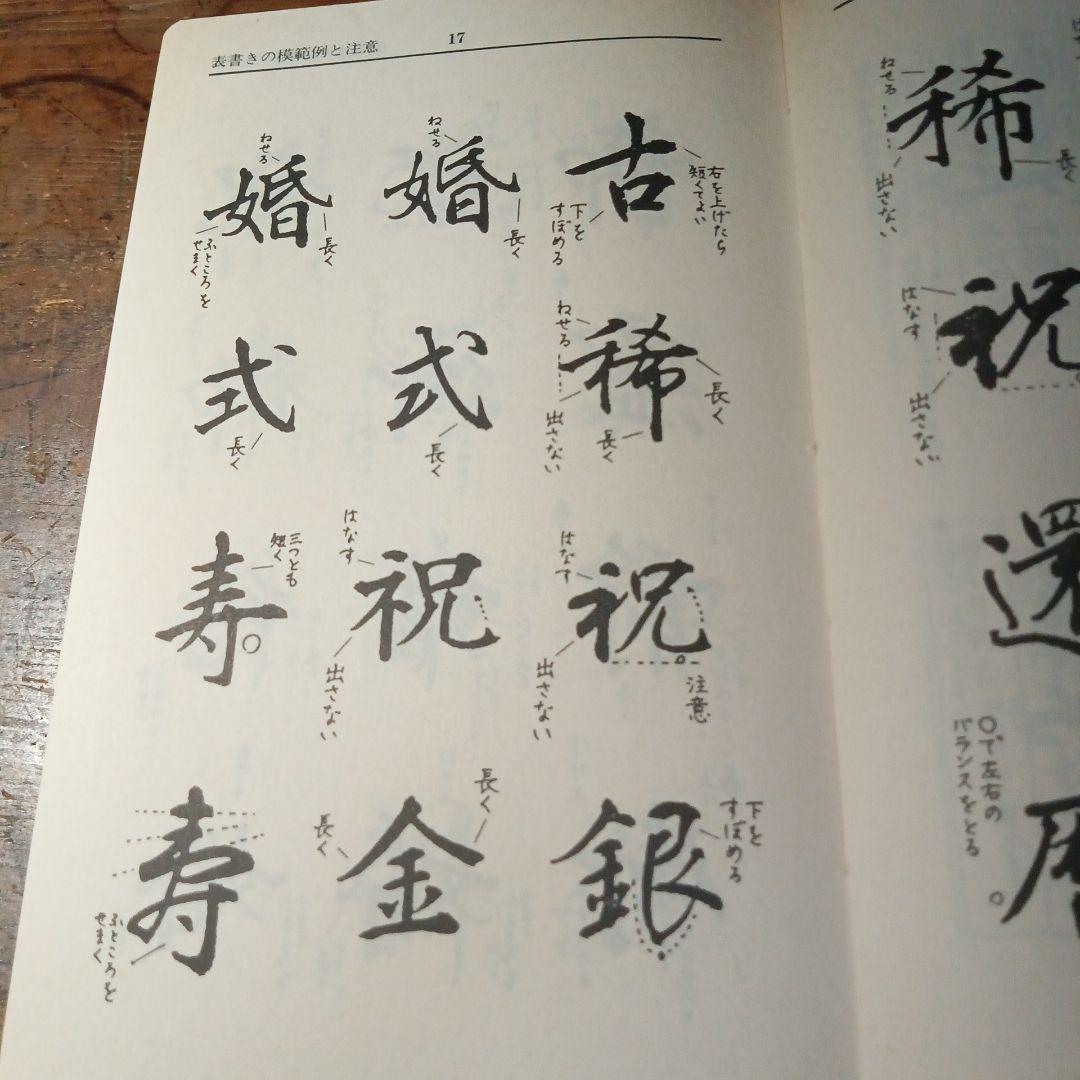 表書きの模範例と注意
17
古
右を上げたら
短くてよい
下を
すぼめる
稀
ねせる
出さない
長く
長く
祝
はなす
出さない
注意
銀
下を
すぼめる
婚
ねせる
長く
式
長く
祝
はなす
出さない
金
長く
長く
婚
ねせる
長く
ふところを
せまく
式
長く
寿
三つとも
短く
寿
ふところを
せまく
稀
ねせる
出さない
長く
祝
はなす
出さない
還
〇で左右の
バランスをとる
暦